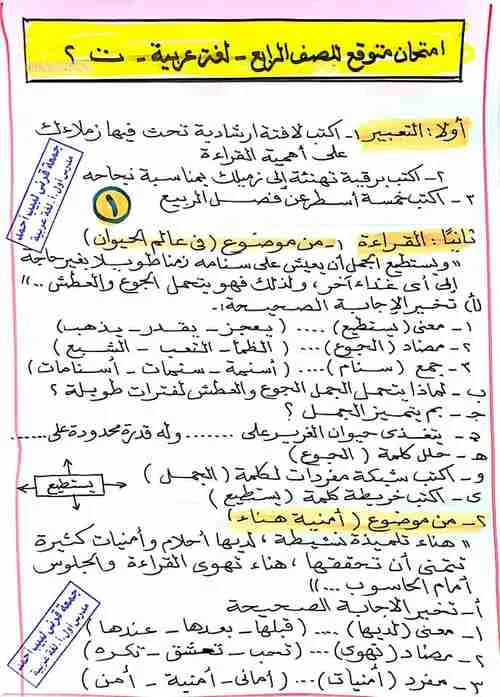 امتحان متوقع للصف الرابع - لغة عربية - ت ٢
أولا : التعبير ١- اكتب لافتة ارشادية تحث فيها زملاءك
على أهمية القراءة
٢- اكتب برقية تهنئة إلى زميلك بمناسبة نجاحه
٣- اكتب خمسة أسطر عن فصل الربيع
١
جمعة قرني لبيب احمد
مدرس اول أ. لغة عربية
ثانيًا : القراءة ١- من موضوع ( في عالم الحيوان )
" ويستطيع الجمل أن يعيش على سنامه زمنا طويلا بغير حاجة
إلى أي غذاء آخر، ولذلك فهو يتحمل الجوع والعطش .. "
أ) تخير الإجابة الصحيحة :-
١- معنى ( يستطيع ) .... ( يعجز - يقدر - يذهب )
٢- مضاد ( الجوع ) .... ( الظمأ - التعب - الشبع )
٣- جمع ( سنام ) .... ( أسنمة - سنيمات - أسنامات )
ب- لماذا يتحمل الجمل الجوع والعطش لفترات طويلة ؟
جـ- بم يتميز الجمل ؟
د- يتغذى حيوان الغرير على ........ وله قدرة محدودة على .....
هـ- حلل كلمة ( الجوع )
و- اكتب شبكة مفردات لكلمة ( الجمل )
ى- اكتب خريطة كلمة ( يستطيع )
يستطيع
٢- من موضوع ( أمنية هناء )
" هناء تلميذة نشيطة ، لديها أحلام وأمنيات كثيرة
تتمنى أن تحققها ، هناء تهوى القراءة والجلوس
أمام الحاسوب ... "
أ- تخير الاجابة الصحيحة
١- معنى ( لديها ) .... ( قبلها - بعدها - عندها )
٢- مضاد ( تهوى ) ... ( تحب - تعشق - تكره )
٣- مفرد ( أمنيات ) ... ( أمانى - أمنية - أمن )
جمعة قرني لبيب احمد
مدرس اول أ. لغة عربية